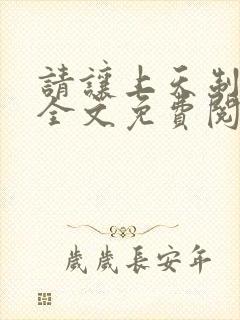 請讓上天制
全文免費閱
歲歲長安年